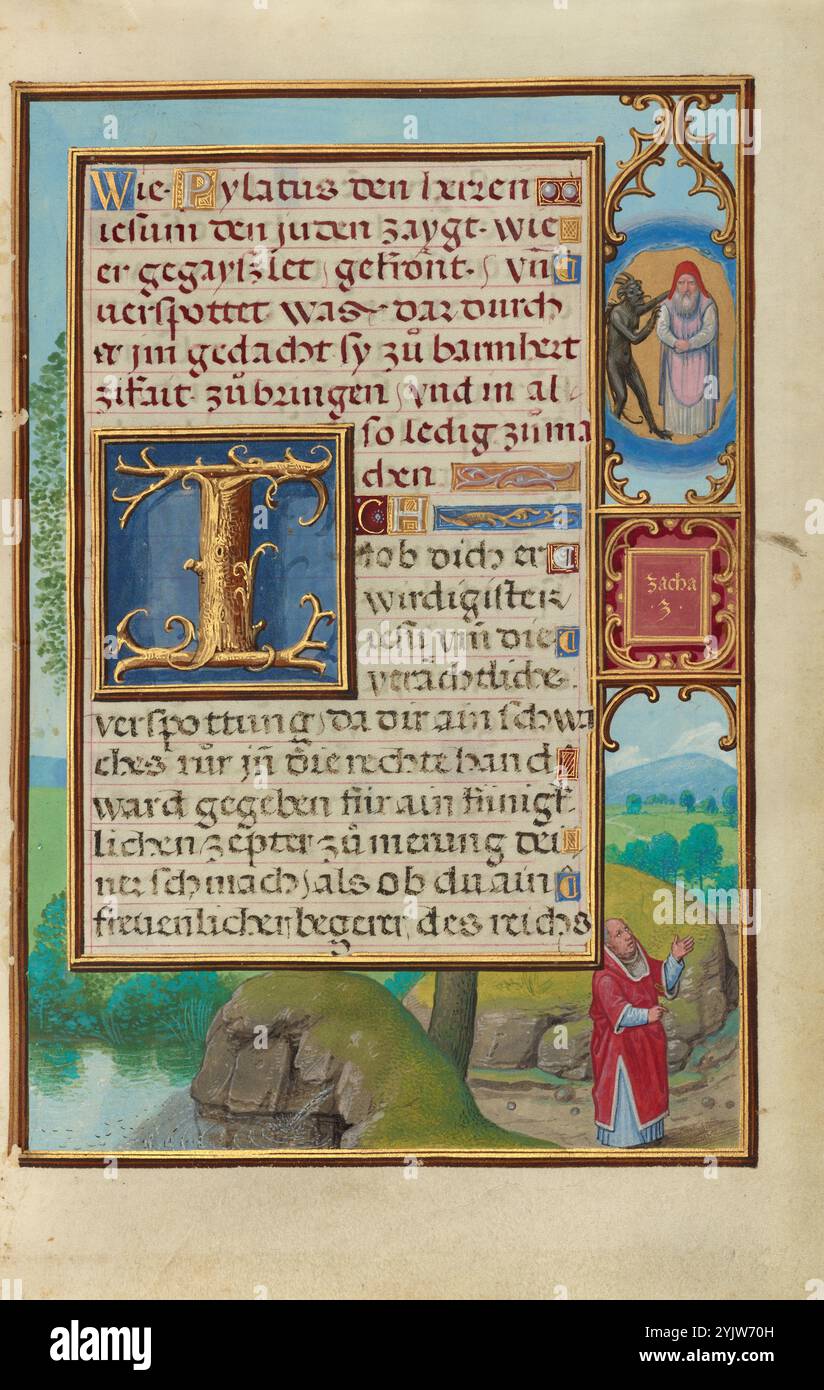 Wie Pylatus den herren
iesum den juden zaygt. wie
er gegayszlet, gekrönt, Vñ
verspottet was dardurch
er jm gedacht sy zů barmhert
zikait zůbringen, vnd in al
so ledig zůma
chen
ICH
lob dich er
wirdigister
iesu vmb die
verächtliche
verspottung, da dir ain schwa
ches rŭr jn die rechte hand
ward gegeben für ain künigk
lichen zepter zů merung dei
ner schmach, als ob du ain
freuenlicher begerer des reichs
zacha
.3.
alamy
Image ID: 2YJW70H
www.alamy.com